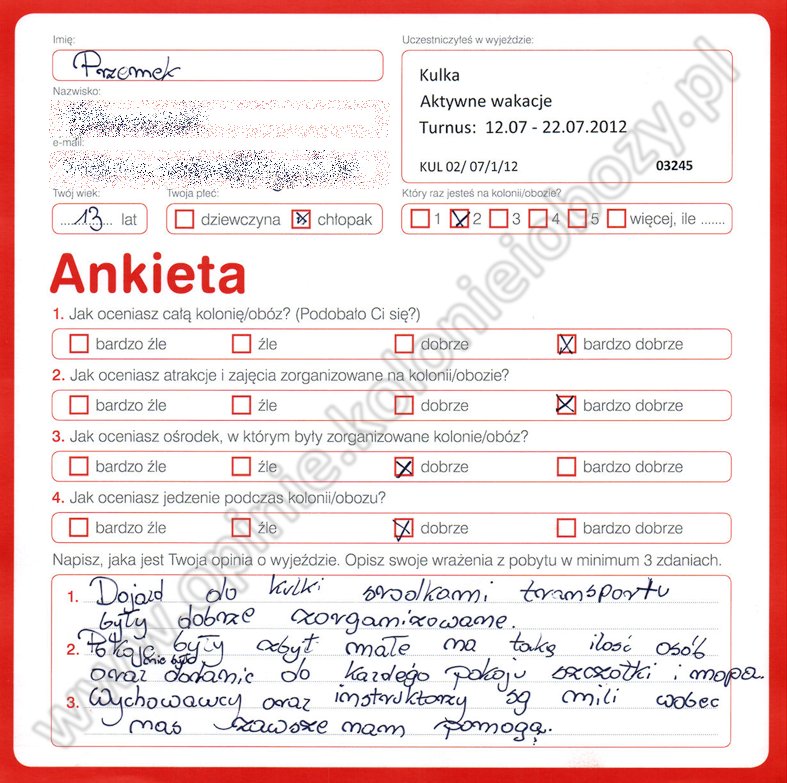 Imię:
Przemek
Nazwisko:
e-mail:
Twój wiek:
13 lat
Twoja płeć:
dziewczyna chłopak
Uczestniczyłeś w wyjeździe:
Kulka
Aktywne wakacje
Turnus: 12.07 - 22.07.2012
KUL 02/ 07/1/12 03245
Który raz jesteś na kolonii/obozie?
1 2 3 4 5 więcej, ile .......
Ankieta
1. Jak oceniasz całą kolonię/obóz? (Podobało Ci się?)
bardzo źle źle dobrze bardzo dobrze
2. Jak oceniasz atrakcje i zajęcia zorganizowane na kolonii/obozie?
bardzo źle źle dobrze bardzo dobrze
3. Jak oceniasz ośrodek, w którym były zorganizowane kolonie/obóz?
bardzo źle źle dobrze bardzo dobrze
4. Jak oceniasz jedzenie podczas kolonii/obozu?
bardzo źle źle dobrze bardzo dobrze
Napisz, jaka jest Twoja opinia o wyjeździe. Opisz swoje wrażenia z pobytu w minimum 3 zdaniach.
1. Dojazd do kulki srodkami transportu
były dobrze zorganizowane.
2. Pokoje były zbyt małe na taką ilość osób
oraz dodanie do każdego pokoju szczotki i mopa.
3. Wychowawcy oraz instruktorzy są mili wobec
nas zawsze nam pomogą.
www.opinie.kolonieiobozy.pl